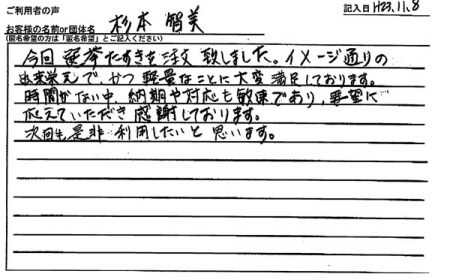 ご利用者の声
記入日 H23.11.8
お客様の名前or団体名 杉本 智美
(匿名希望の方は「匿名希望」とご記入ください)
今回選挙たすきを注文致しました。イメージ通りの
出来栄えで、かつ軽量なことに大変満足しております。
時間がない中、納期や対応も敏速であり、要望に
応えていただき感謝しております。
次回も是非利用したいと思います。